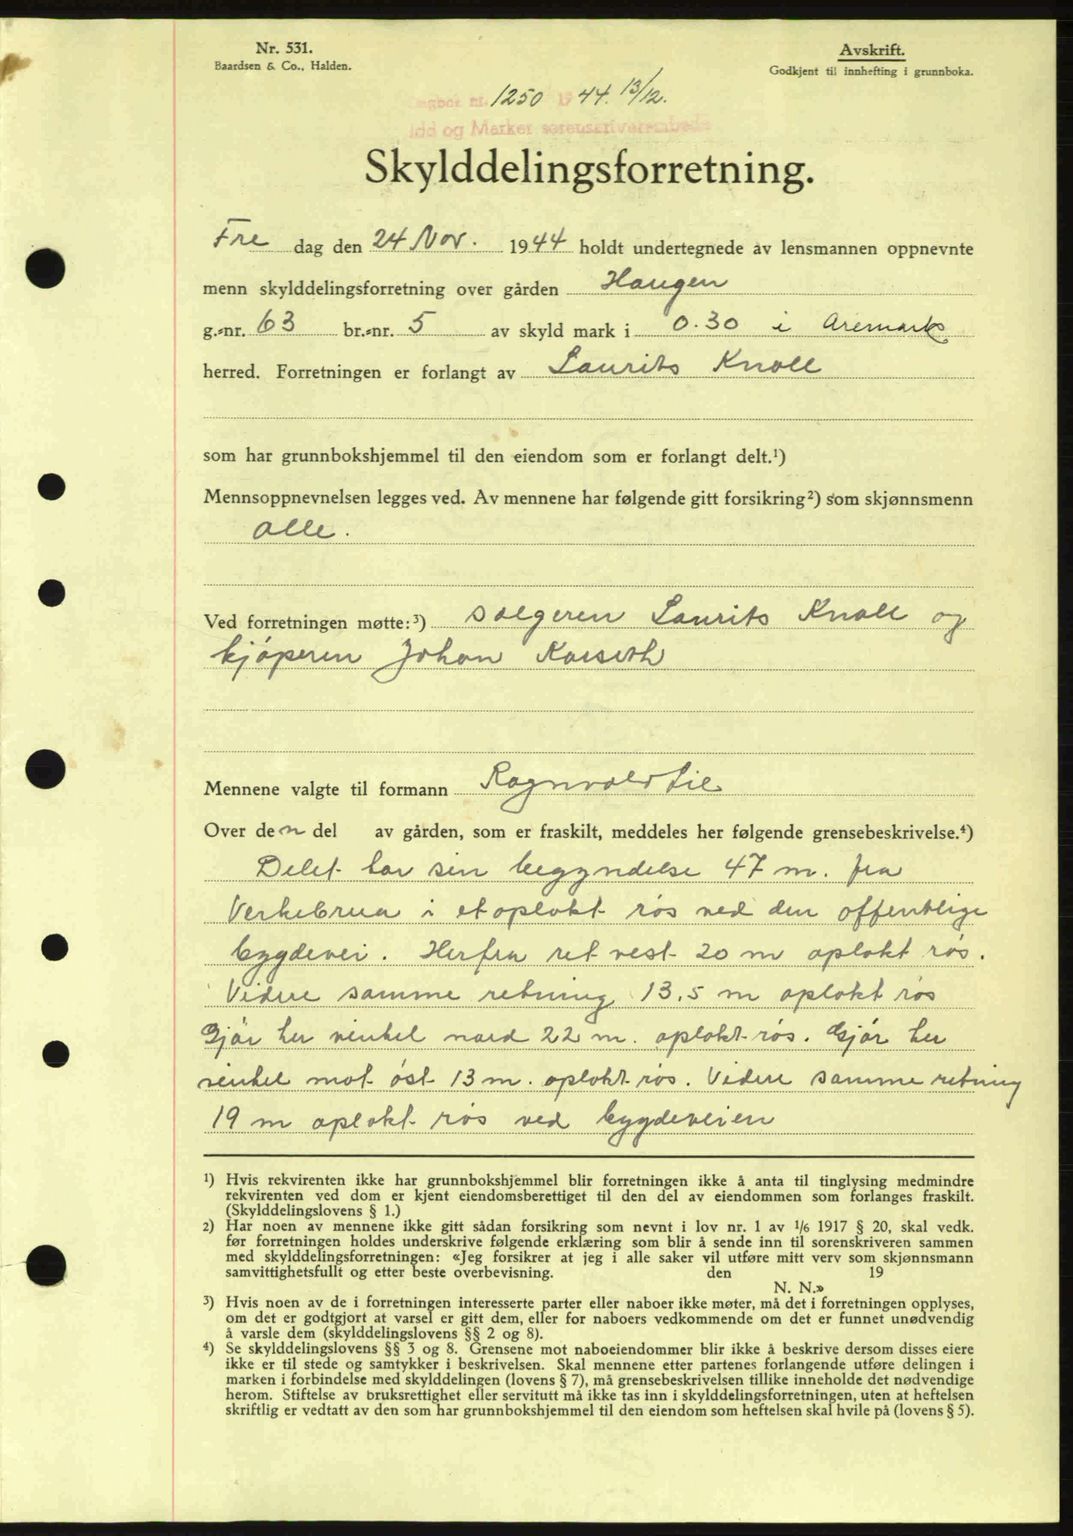 Nr. 531.
Baardsen & Co., Halden.
Avskrift.
Godkjent til innhefting i grunnboka.
Dagbok nr. 1250 1944. 13/12.
Idd og Marker sorenskriverembede
Skylddelingsforretning.
Fre dag den 24 Nov. 1944 holdt undertegnede av lensmannen oppnevnte
menn skylddelingsforretning over gården Haugen
g.-nr. 63 br.-nr. 5 av skyld mark i 0.30 i Aremark
herred. Forretningen er forlangt av Laurits Knoll
som har grunnbokshjemmel til den eiendom som er forlangt delt.¹)
Mennsoppnevnelsen legges ved. Av mennene har følgende gitt forsikring²) som skjønnsmenn
alle.
Ved forretningen møtte:³) sælgeren Laurits Knoll og
kjøperen Johan
Mennene valgte til formann Ragnvald Lie
Over den del av gården, som er fraskilt, meddeles her følgende grensebeskrivelse.⁴)
Delet har sin begyndelse 47 m. fra
Verkebrua i et oplakt røs ved den offentlige
bygdevei. Herfra ret vest 20 m oplakt røs.
Videre samme retning 13,5 m oplakt røs
Gjør her vinkel nord 22 m. oplakt røs. Gjør her
vinkel mot øst 13 m. oplakt røs. Videre samme retning
19 m oplakt røs ved bygdeveien
¹) Hvis rekvirenten ikke har grunnbokshjemmel blir forretningen ikke å anta til tinglysing medmindre
rekvirenten ved dom er kjent eiendomsberettiget til den del av eiendommen som forlanges fraskilt.
(Skylddelingslovens § 1.)
²) Har noen av mennene ikke gitt sådan forsikring som nevnt i lov nr. 1 av 1/6 1917 § 20, skal vedk.
før forretningen holdes underskrive følgende erklæring som blir å sende inn til sorenskriveren sammen
med skylddelingsforretningen: «Jeg forsikrer at jeg i alle saker vil utføre mitt verv som skjønnsmann
samvittighetsfullt og etter beste overbevisning. den 19
N. N.»
³) Hvis noen av de i forretningen interesserte parter eller naboer ikke møter, må det i forretningen opplyses,
om det er godtgjort at varsel er gitt dem, eller for naboers vedkommende om det er funnet unødvendig
å varsle dem (skylddelingslovens §§ 2 og 8).
⁴) Se skylddelingslovens §§ 3 og 8. Grensene mot naboeiendommer blir ikke å beskrive dersom disses eiere
ikke er til stede og samtykker i beskrivelsen. Skal mennene etter partenes forlangende utføre delingen i
marken i forbindelse med skylddelingen (lovens § 7), må grensebeskrivelsen tillike inneholde det nødvendige
herom. Stiftelse av bruksrettighet eller servitutt må ikke tas inn i skylddelingsforretningen, uten at heftelsen
skriftlig er vedtatt av den som har grunnbokshjemmel til den eiendom som heftelsen skal hvile på (lovens § 5).